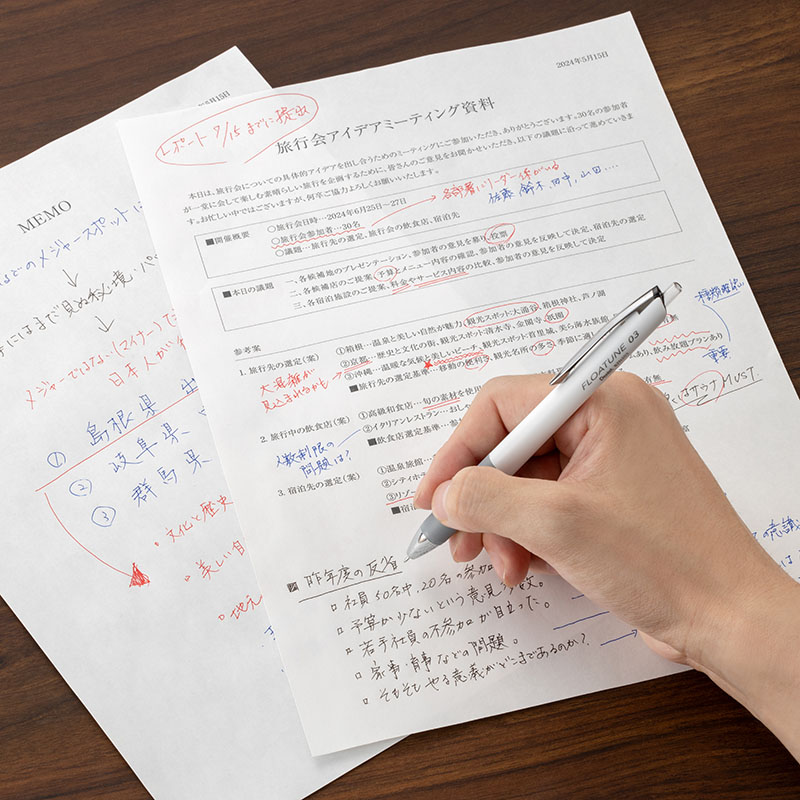 5月15日
MEMO
メジャースポットに
↓
には まで 見ぬ 秘境・パ
↓
メジャーではない(マイナー)で
日本人が
① 島根県
② 岐阜県
③ 群馬県
文化と歴史
美しい自
地元
2024年5月15日
レポート 7/15 までに提出
旅行会アイデアミーティング資料
本日は、旅行会についての具体的アイデアを出し合うためのミーティングにご参加いただき、ありがとうございます。30名の参加者
が一堂に会して楽しむ素晴らしい旅行を企画するために、皆さんのご意見をお聞かせいただき、以下の議題に沿って進めていきま
す。お忙しい中ではございますが、何卒ご協力よろしくお願いいたします。
各部署にリーダー係がいる
佐藤 鈴木 田中 山田 ....
■開催概要
○旅行会日時…2024年6月25日〜27日
○旅行会参加者…30名
○議題…旅行先の選定、旅行会の飲食店、宿泊先
■本日の議題
一、各候補地のプレゼンテーション、参加者の意見を募り、投票
二、各候補店のご提案、予算とメニュー内容の確認、参加者の意見を反映して決定、宿泊先の選定
三、各宿泊施設のご提案、料金やサービス内容の比較、参加者の意見を反映して決定
参考案
1. 旅行先の選定(案)
①箱根…温泉と美しい自然が魅力、観光スポット:大涌谷、箱根神社、芦ノ湖
②京都…歴史と文化の街、観光スポット:清水寺、金閣寺、祇園
③沖縄…温暖な気候と美しいビーチ、観光スポット:首里城、美ら海水族館
■旅行先の選定基準…移動の便利さ、観光名所の多さ、季節に適
大混雑が
見込まれるかも
2. 旅行中の飲食店(案)
①高級和食店…旬の素材を使用
②イタリアンレストラン…おしゃ
■飲食店選定基準…参
あり、飲み放題プランあり
重要
有無
はサウナ MUST.
人数制限の
問題は?
3. 宿泊先の選定(案)
①温泉旅館…
②シティホテ
③リゾー
■宿
FLOATUNE 03
昨年度の反省
□ 社員50名中、20名の参加
□ 予算が少ないという意見多数。
□ 若手社員の不参加が目立った。
□ 家事・育事などの問題。
□ そもそもやる意義がどこまであるのか?
の意識